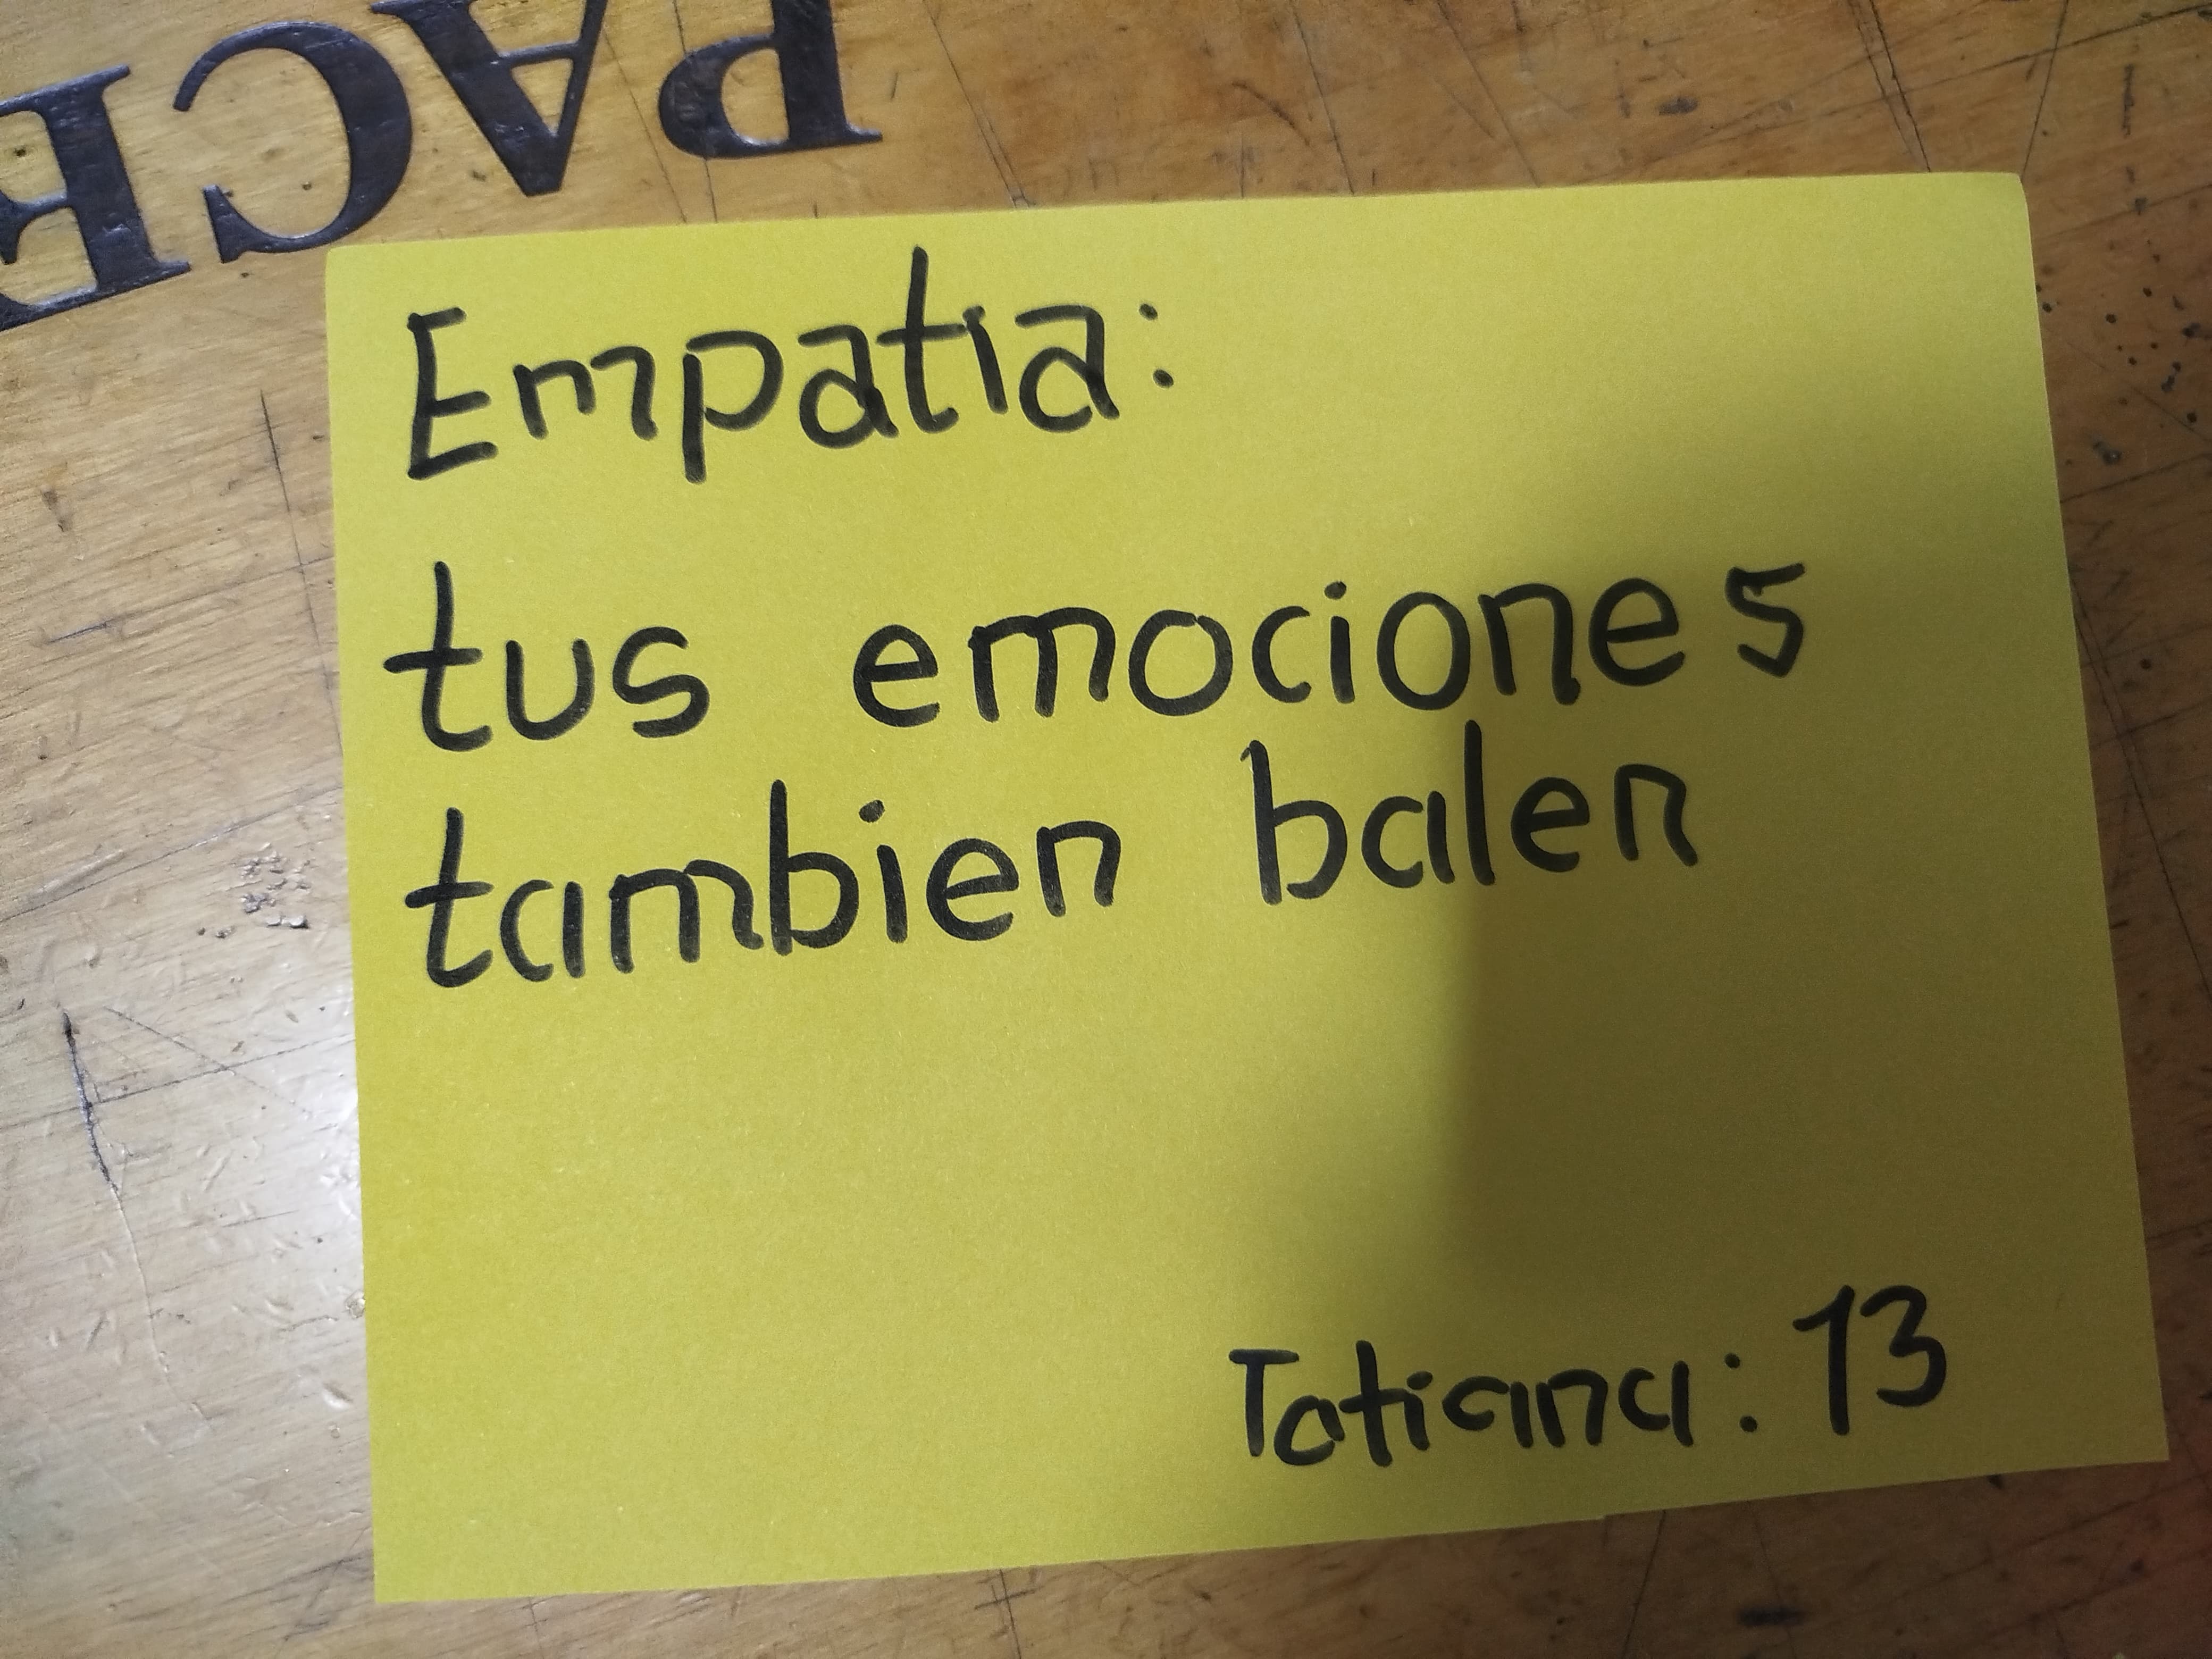 PACE
Empatia:
tus emociones
tambien balen
Tatiana: 13